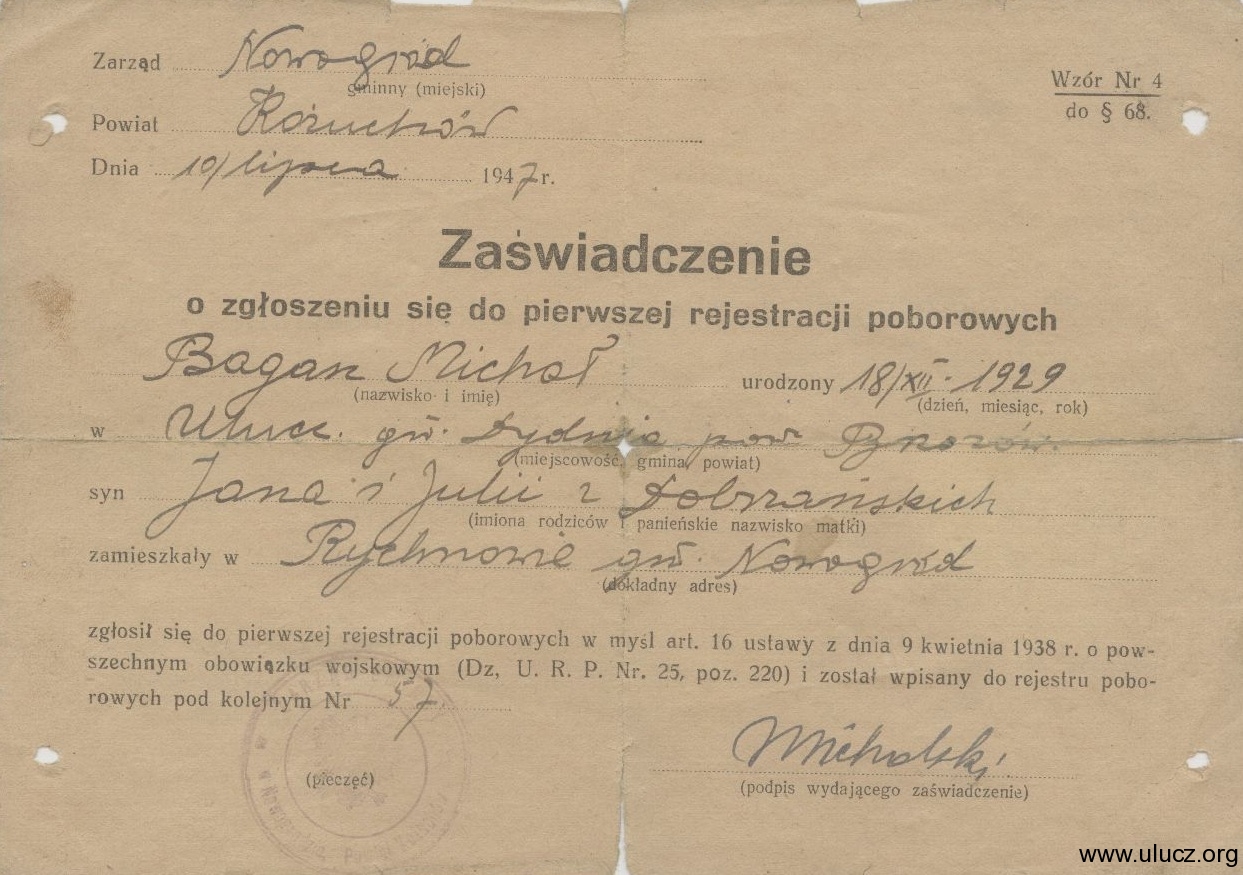 Zarząd Nowogród
gminny (miejski)
Wzór Nr 4
do § 68.
Powiat Kożuchów
Dnia 10/lipca 1947 r.
Zaświadczenie
o zgłoszeniu się do pierwszej rejestracji poborowych
Bagan Michał urodzony 18/XII. 1929
(nazwisko i imię) (dzień, miesiąc, rok)
w Ulucz. gm. Dydnia pow Brzozów.
(miejscowość, gmina, powiat)
syn Jana i Julii z Dobrzańskich
(imiona rodziców i panieńskie nazwisko matki)
zamieszkały w Rychnowie gm. Nowogród
(dokładny adres)
zgłosił się do pierwszej rejestracji poborowych w myśl art. 16 ustawy z dnia 9 kwietnia 1938 r. o pow-
szechnym obowiązku wojskowym (Dz, U. R. P. Nr. 25, poz. 220) i został wpisany do rejestru pobo-
rowych pod kolejnym Nr 57.
Michalski
(pieczęć)
(podpis wydającego zaświadczenie)
www.ulucz.org